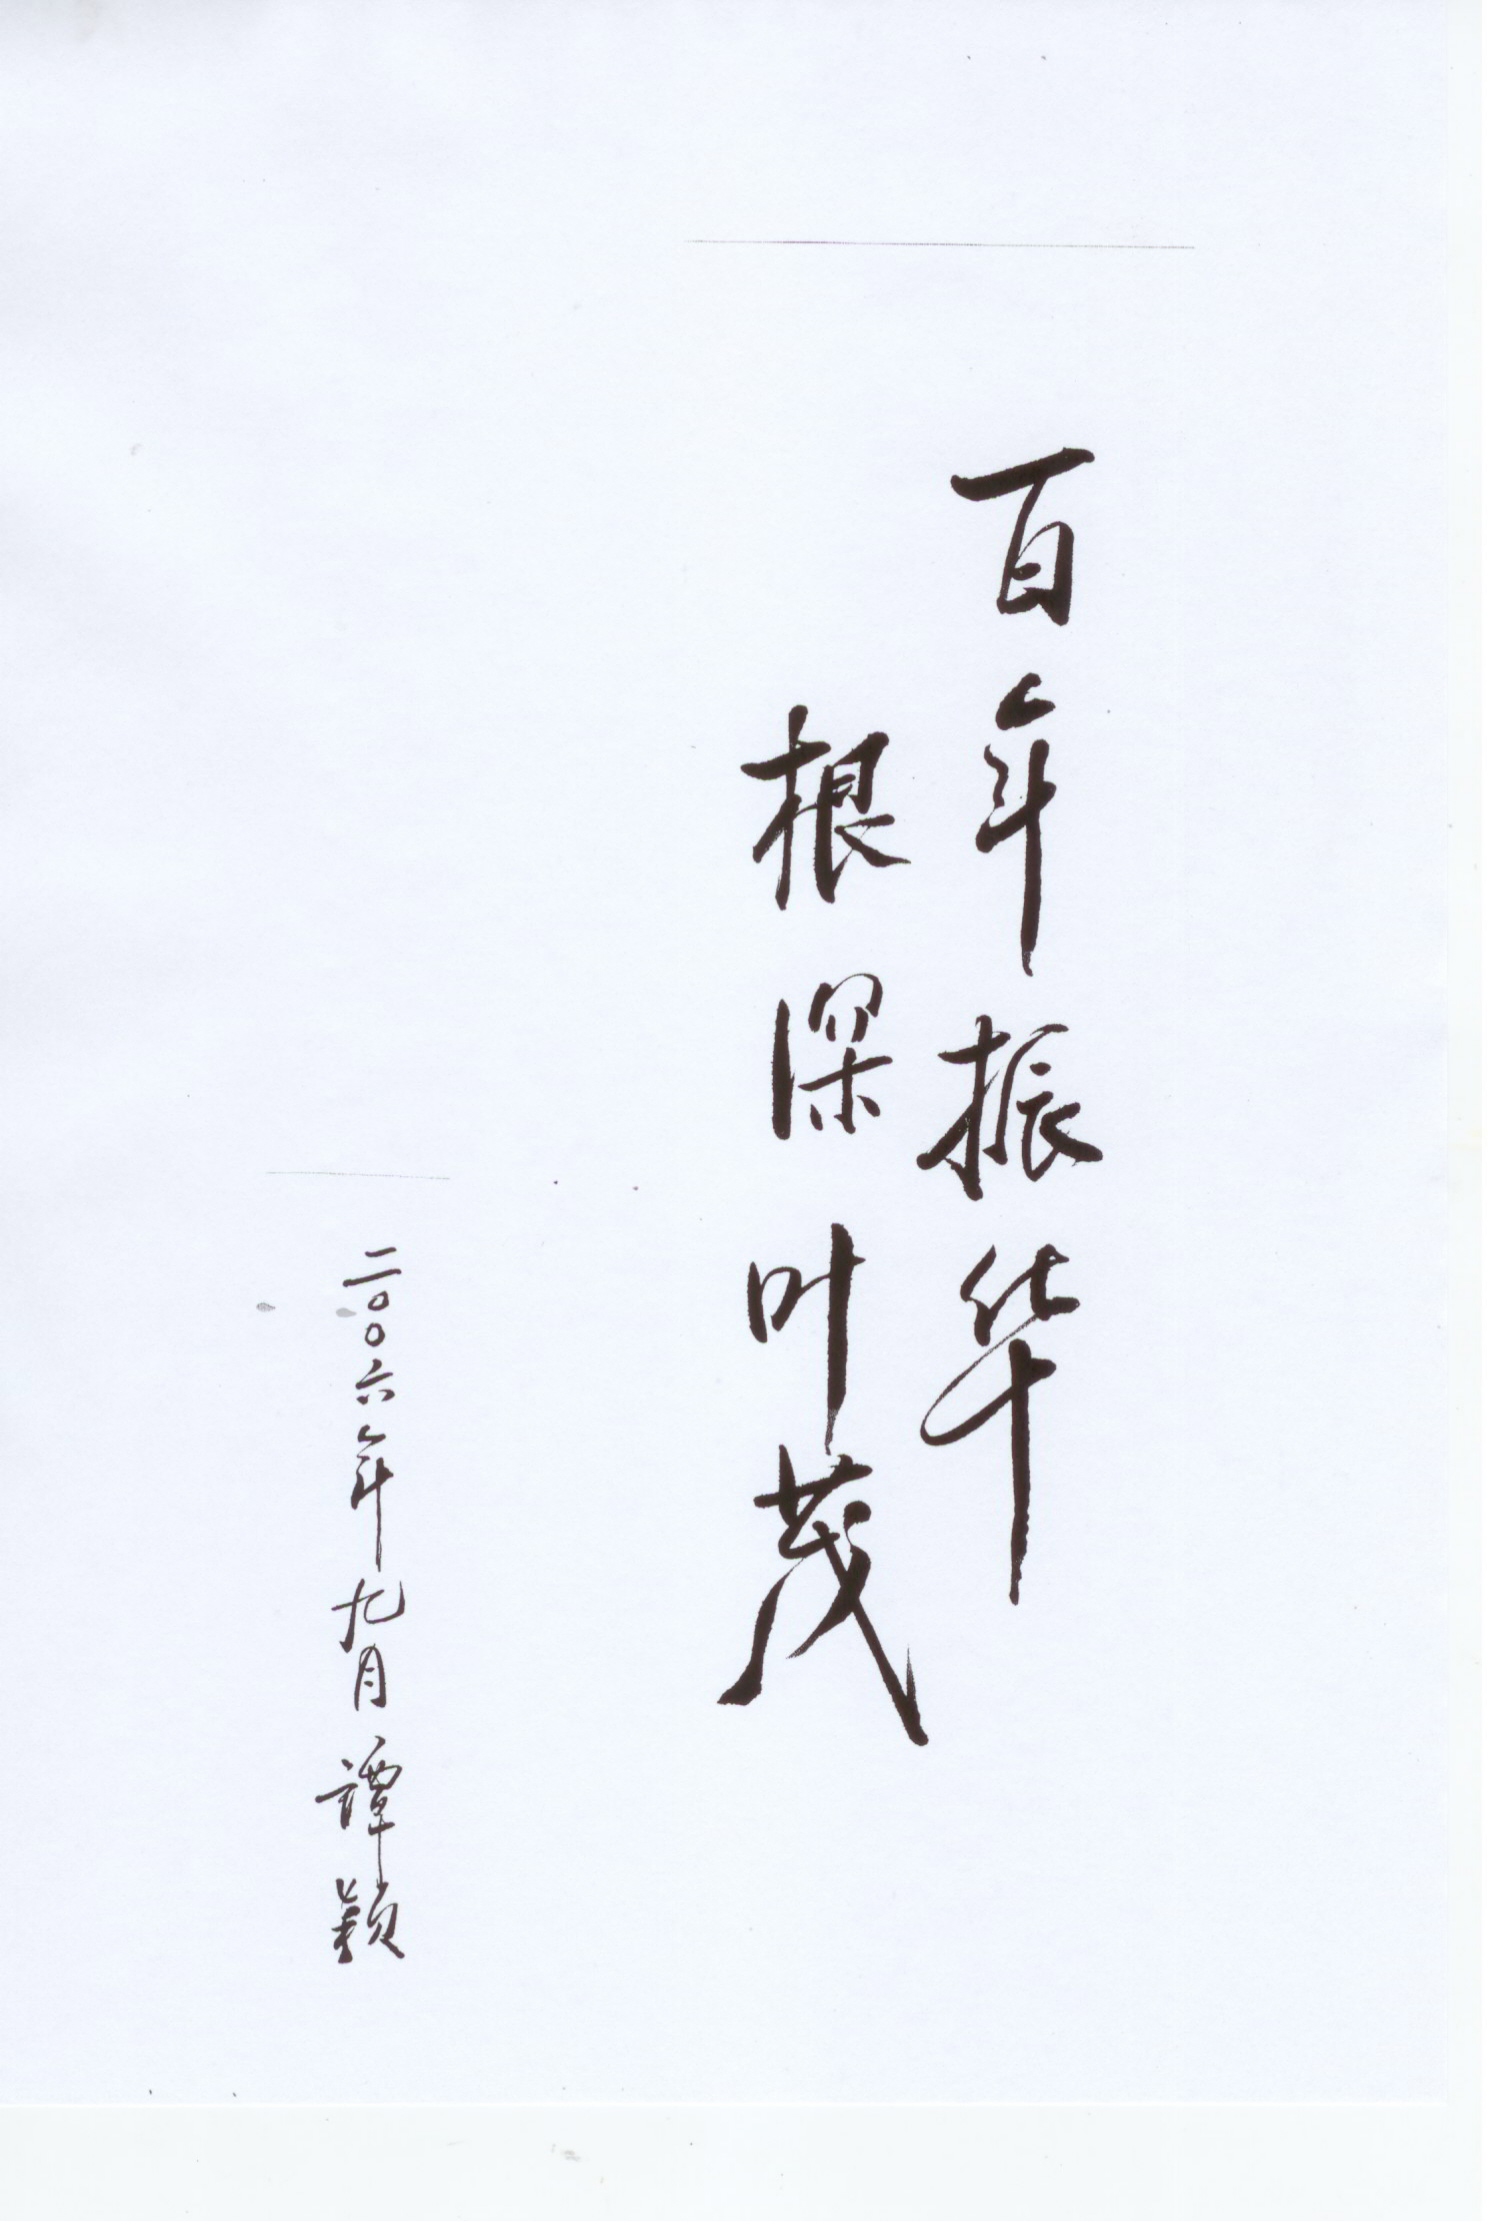 百年振华
根深叶茂
二〇〇六年九月 譚颖